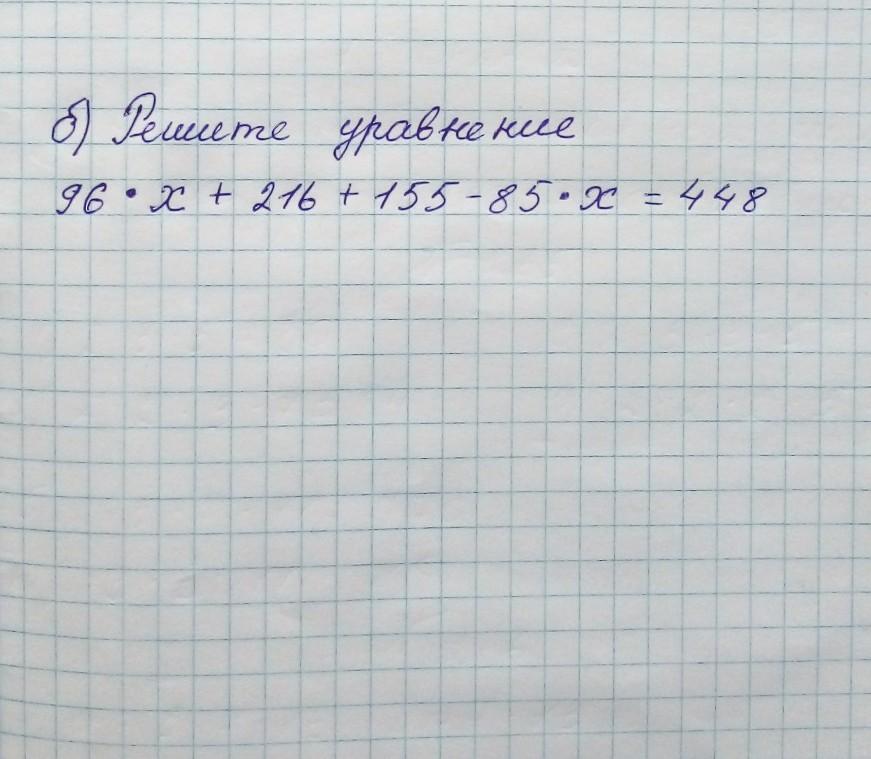 б) Решите уравнение
96 • x + 216 + 155 - 85 • x = 448